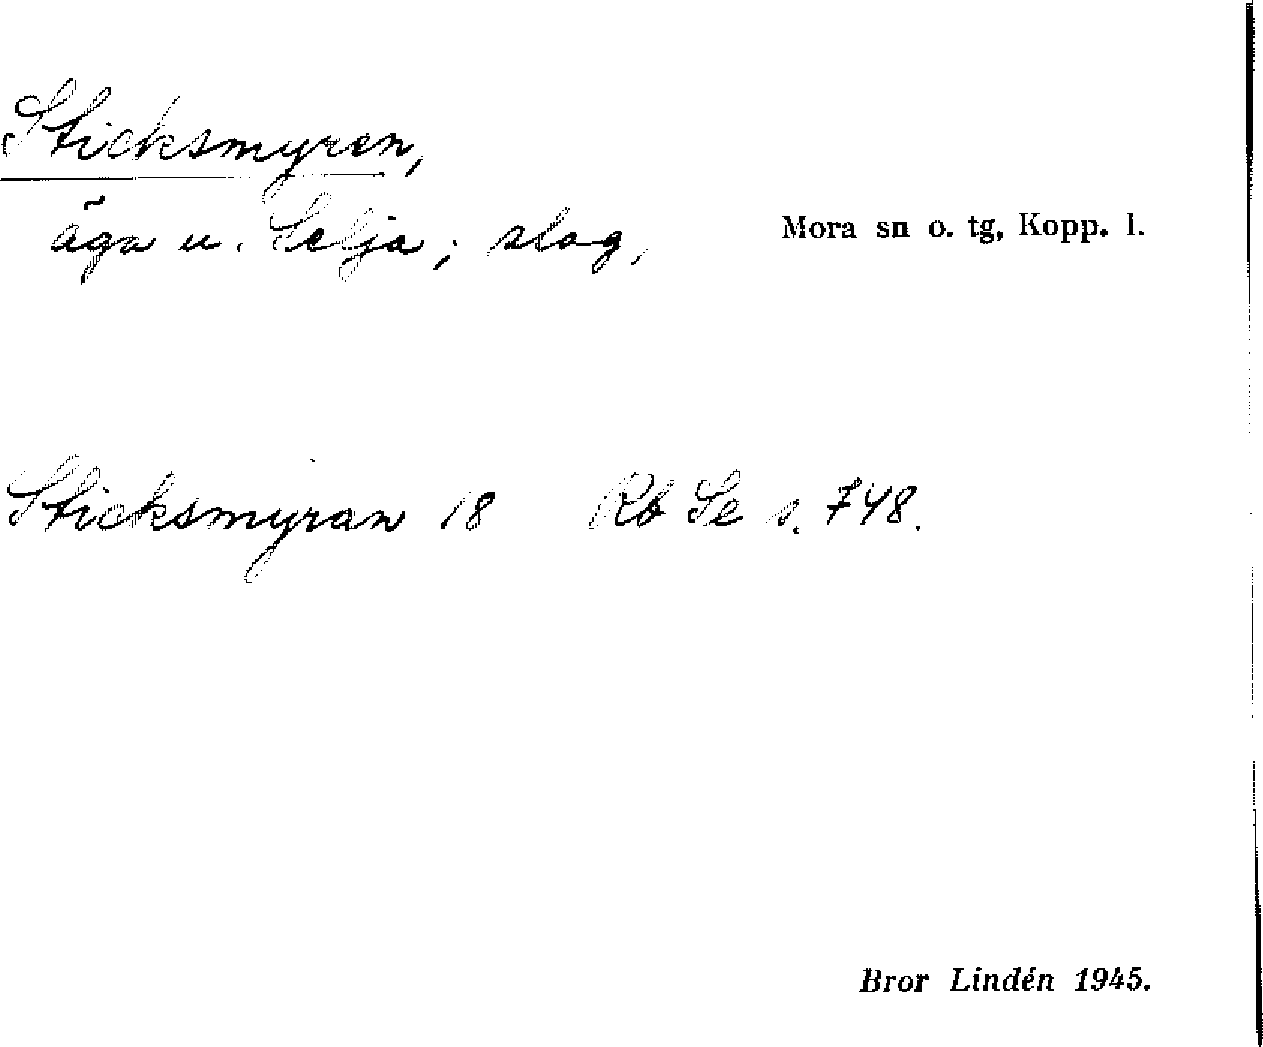 Sticksmyren,
äga u. Selja; slog,
Mora sn o. tg, Kopp. l.
Sticksmyran 18 Rb Se s. 748.
Bror Lindén 1945.